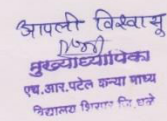 आपली विश्वासू
मुख्याध्यापिका
एच.आर.पटेल कन्या माध्य
विद्यालय शिरपूर जि.धुळे